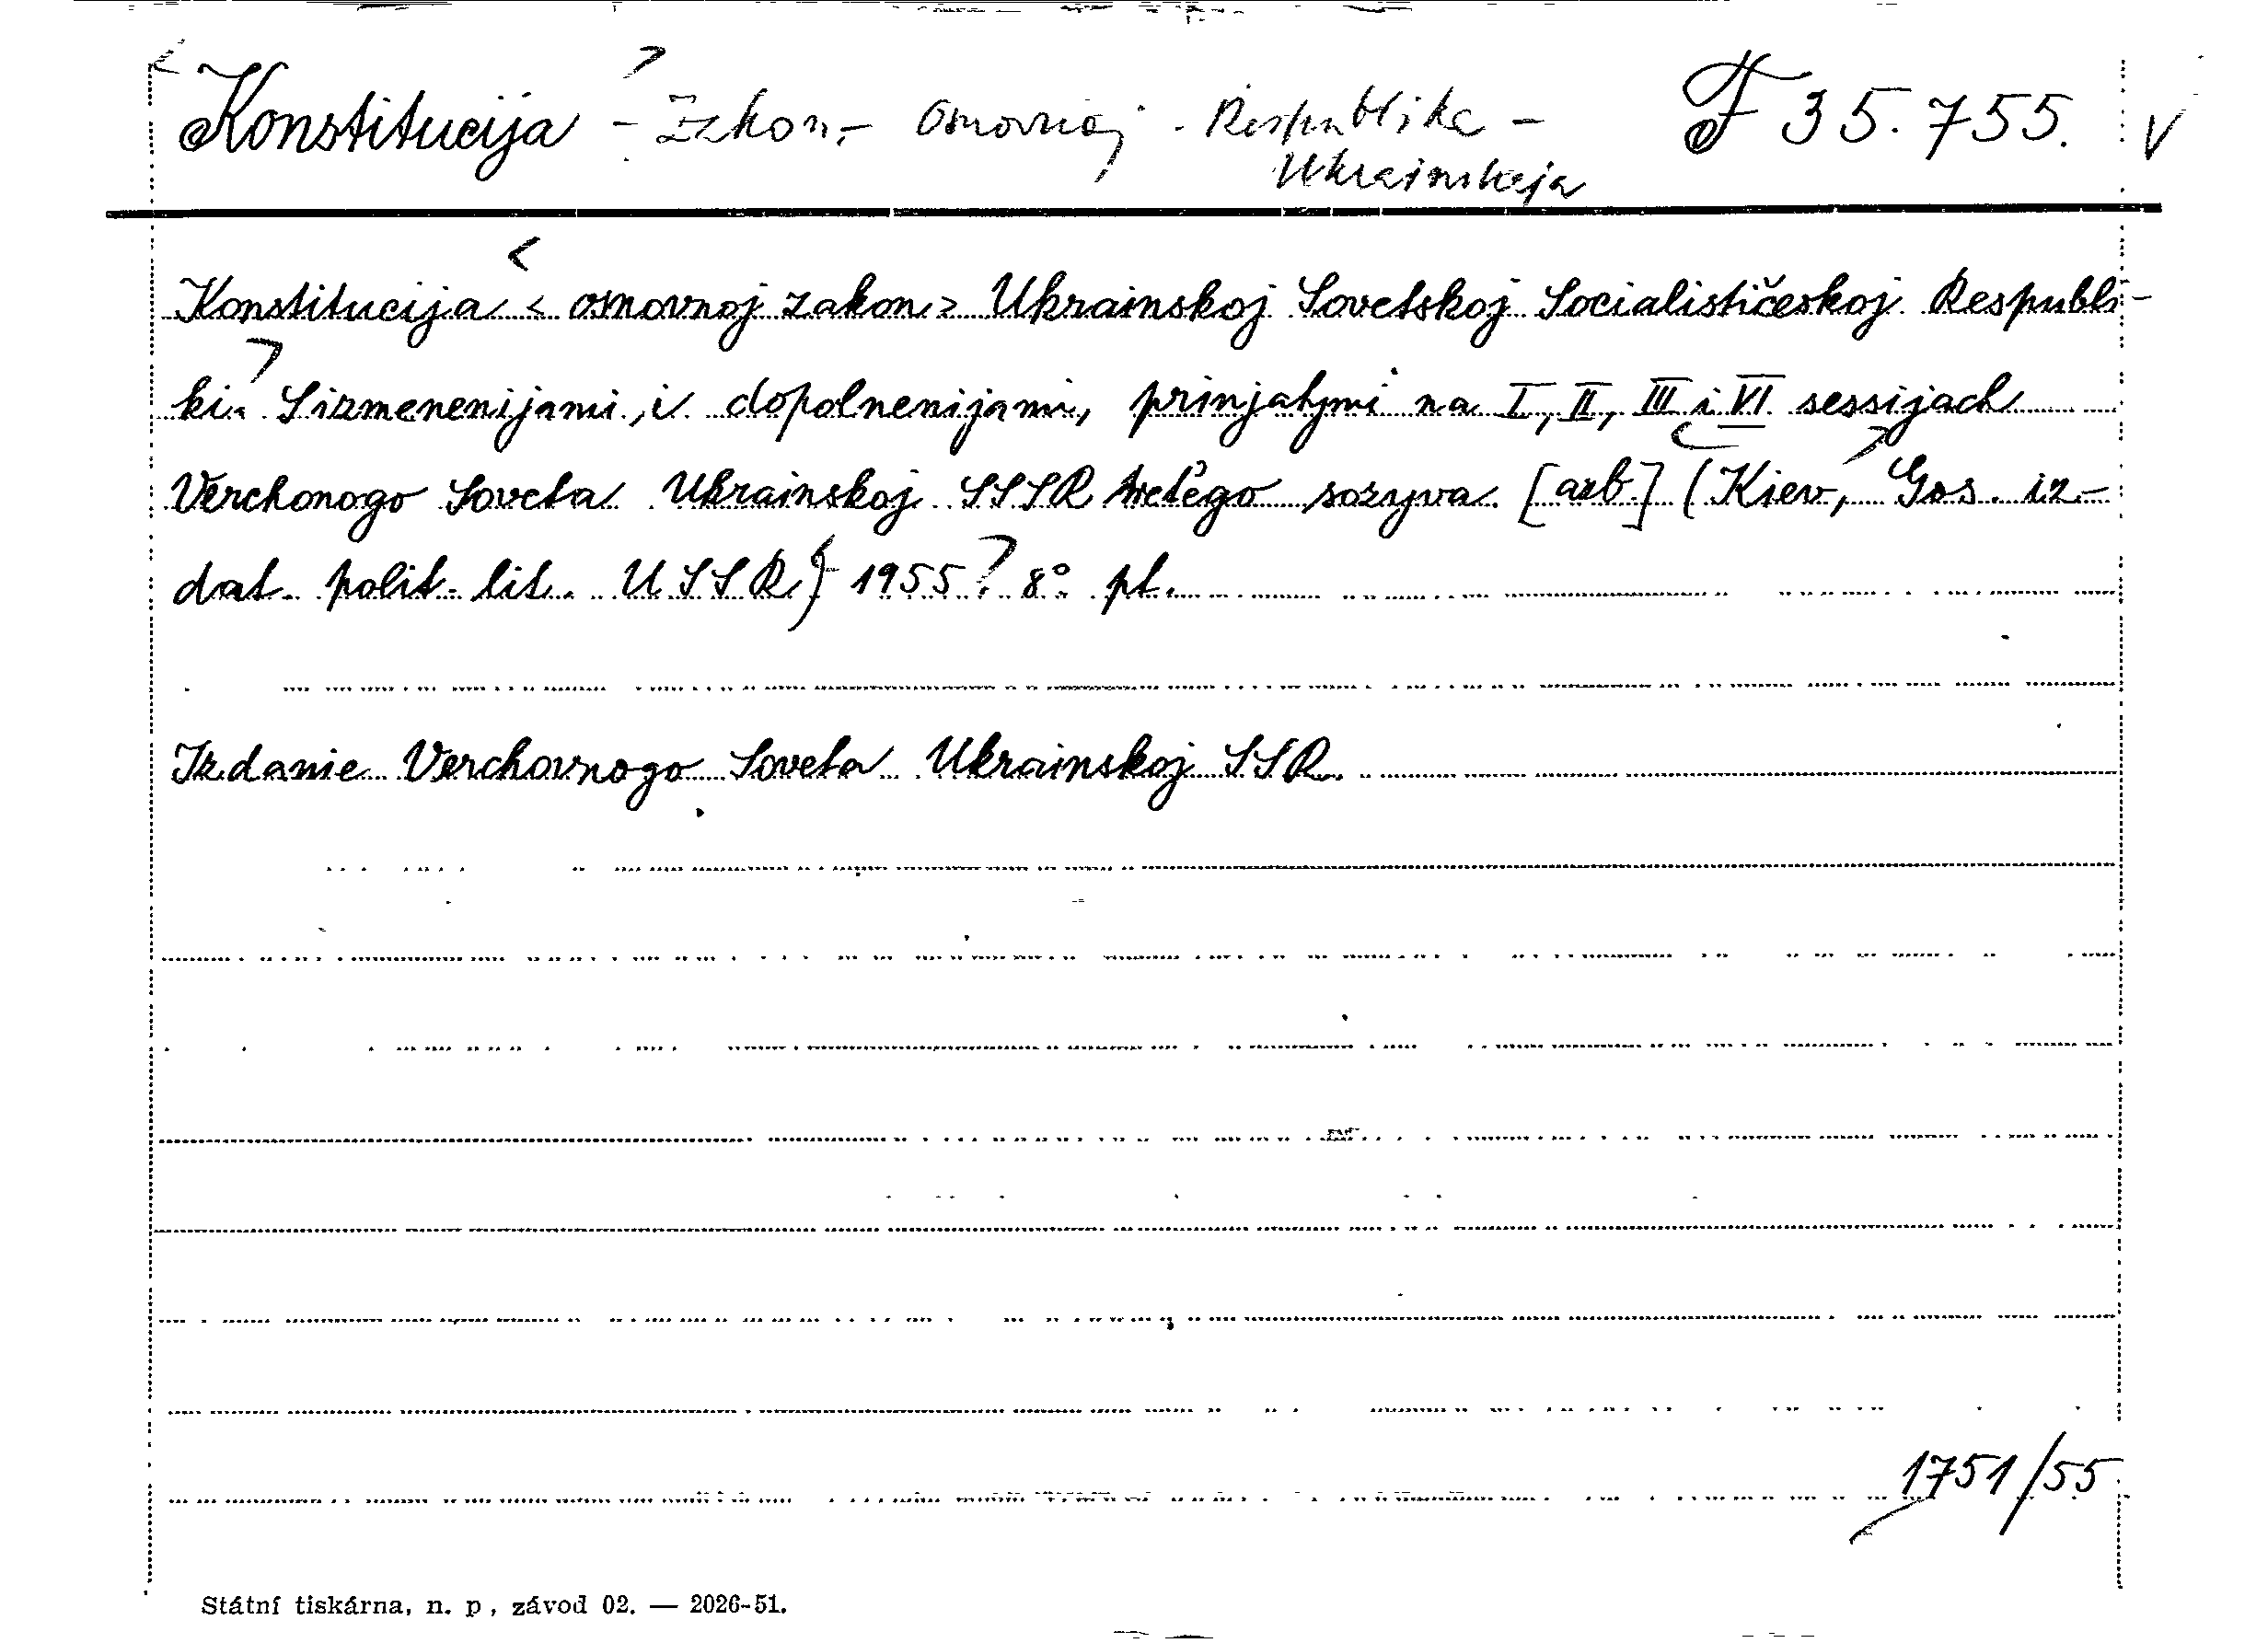 Konstitucija - Izkon.- Osnovnoj - Respublika - F 35.755. V
Ukrainskaja
Konstitucija < osnovnoj zakon > Ukrainskoj Sovetskoj Socialističeskoj Respubli-
ki. S izmenenijami, i dopolnenijami, prinjatymi na I, II, III i VI sessijach
Verchonogo Soveta Ukrainskoj SSSR tret'ego sozyva. [azb.] (Kiev, Gos. iz-
dat. polit. lit. USSR) 1955? 8° pt.
Izdanie Verchovnogo Soveta Ukrainskoj SSR.
1751/55
Státní tiskárna, n. p., závod 02. — 2026-51.